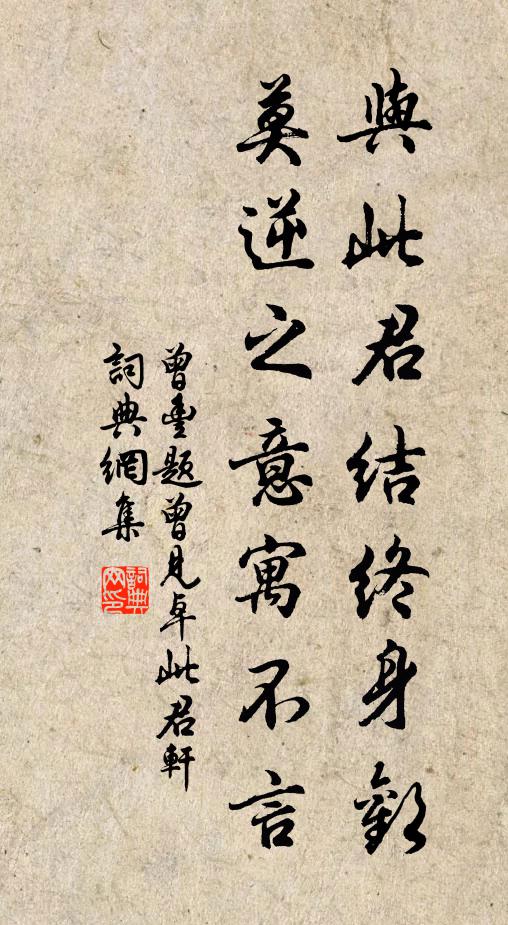 與此君結終身歡
莫逆之意寓不言
曾豐題曾見卓此君軒
詞典網集
詞典
网印